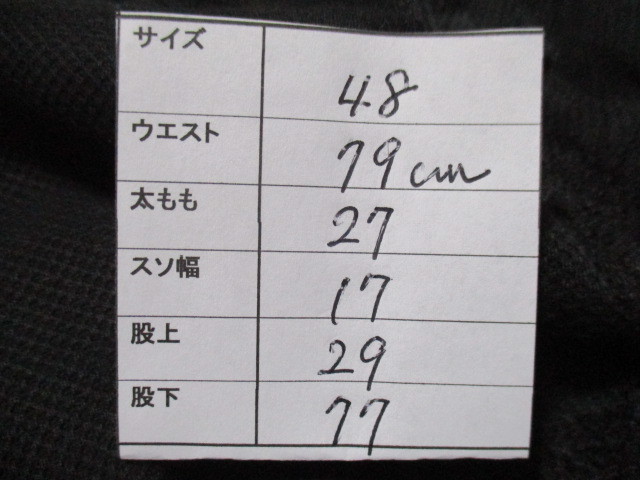 サイズ 48
ウエスト 79cm
太もも 27
スソ幅 17
股上 29
股下 77